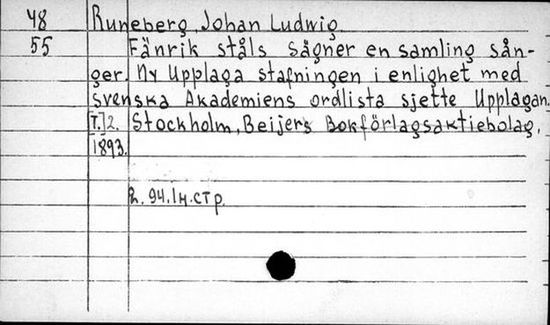 48 Runeberg, Johan Ludwig
55 Fänrik ståls sägner en samling sån-
ger. Ny Upplaga stafningen i enlighet med
svenska Akademiens ordlista sjette Upplagan.
T.]2. Stockholm, Beijers Bokförlagsaktiebolag,
1893.
2. 94. 1н. стр.